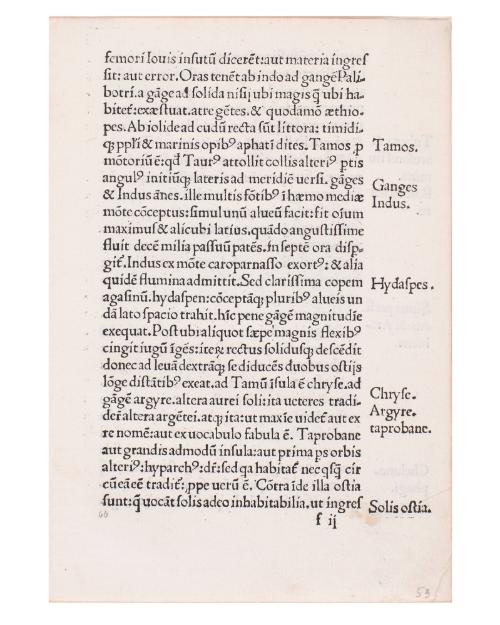 femori Iouis insutū dicerēt:aut materia ingres
sit: aut error. Oras tenēt ab indo ad gangē Pali⸗
botri. a gāge ad solida nisi ubi magis q̄ ubi ha⸗
bitet: exæstuat. atre gētes. & quodāmō æthio⸗
pes. Ab iolide ad cudū recta sūt littora: timidi⸗
q; ppl̄i & marinis opibꝰ aphati dites. Tamos, ꝑ
Tamos.
mōtoriū ē: qd̄ Taurꝰ attollit collis alteriꝰ ptis
angulꝰ initiūq; lateris ad meridiē uersi. gāges
Ganges
& Indus ānes. ille multis fōtibꝰ ī hæmo mediæ
Indus.
mōte cōceptus: simul unū alueū facit: fit oīum
maximus & alicubi latius, quādo angustissime
fluit decē milia passuū patēs. In septē ora disp⸗
git. Indus ex mōte caroparnasso exortꝰ: & alia
quidē flumina admittit. Sed clarissima copem
Hydaspes.
agasinū. hydaspen: cōceptāq; pluribꝰ alueis un
dā lato spacio trahit. hic pene gāgē magnitudīe
exequat. Post ubi aliquot sæpe magnis flexibꝰ
cingit iugū īgēs: iteꝝ rectus solidusq; descēdit
donec ad leuā dextrāq; se diducēs duobus ostijs
lōge distātibꝰ exeat. ad Tamū īsula ē chryse. ad
Chryse.
gāgē argyre. altera aurei soli: ita ueteres tradi⸗
Argyre.
deīt altera argētei. atq; ita: ut maxīe uidet aut ex
taprobane.
re nomē: aut ex uocabulo fabula ē. Taprobane
aut grandis admodū insula: aut prima ps orbis
alteriꝰ: hyparchꝰ: dr̄: sed qa habitat nec qsq̄ cir
cū eā eē tradit: ꝓpe uerū ē. Cōtra īde illa ostia
sunt: q̄ uocāt solis adeo inhabitabilia. ut ingres
Solis ostia.
66
f ij
53